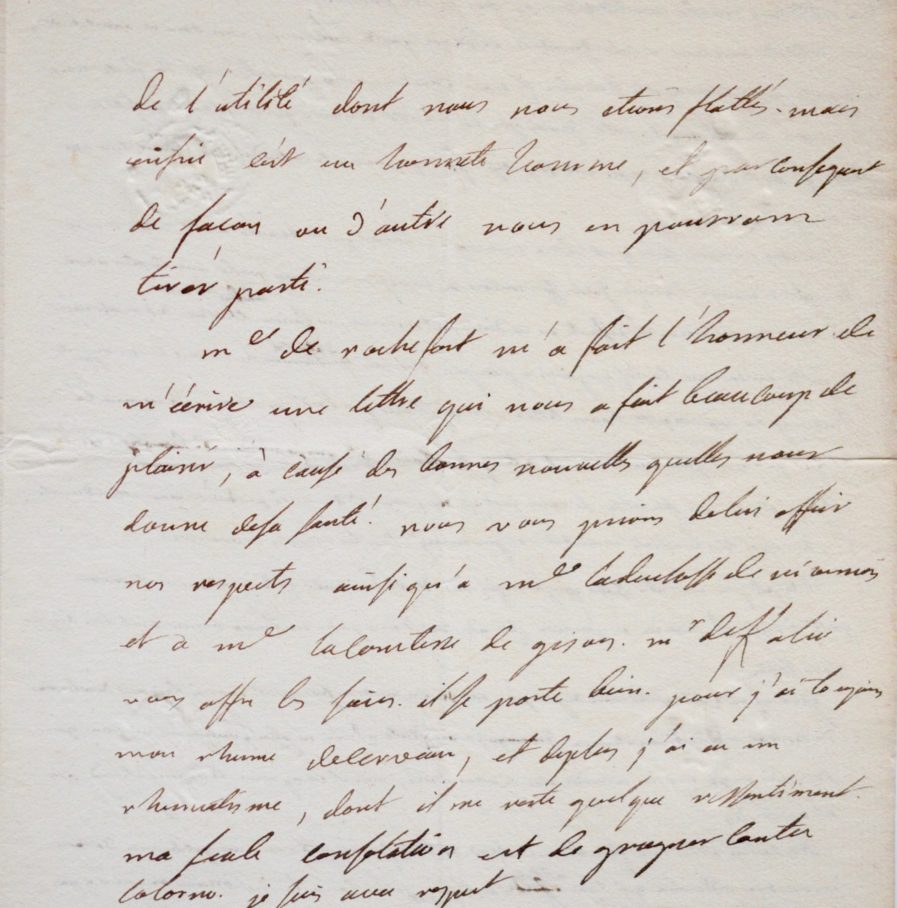 de l'utilité dont nous nous etions flattés. mais
enfin c'est un honnete homme, et par consequent
de façon ou d'autre nous en pourrons
tirer parti.
me de rochefort m'a fait l'honneur de
m'écrire une lettre qui nous a fait beaucoup de
plaisir, à cause des bonnes nouvelles quelles nous
donne desa santé. nous vous prions delui offrir
nos respects ainsi qu'a me laduchesse de nivernois
et a me lacomtesse de gisors. mr
vous offre les siens. ilse porte bien. pour j'ai toujours
mon rhume decerveau, et deplus j'ai eu un
rhumatisme, dont il me reste quelque ressentiment
ma seule consolation est de gragner
colorno. je suis avec respect